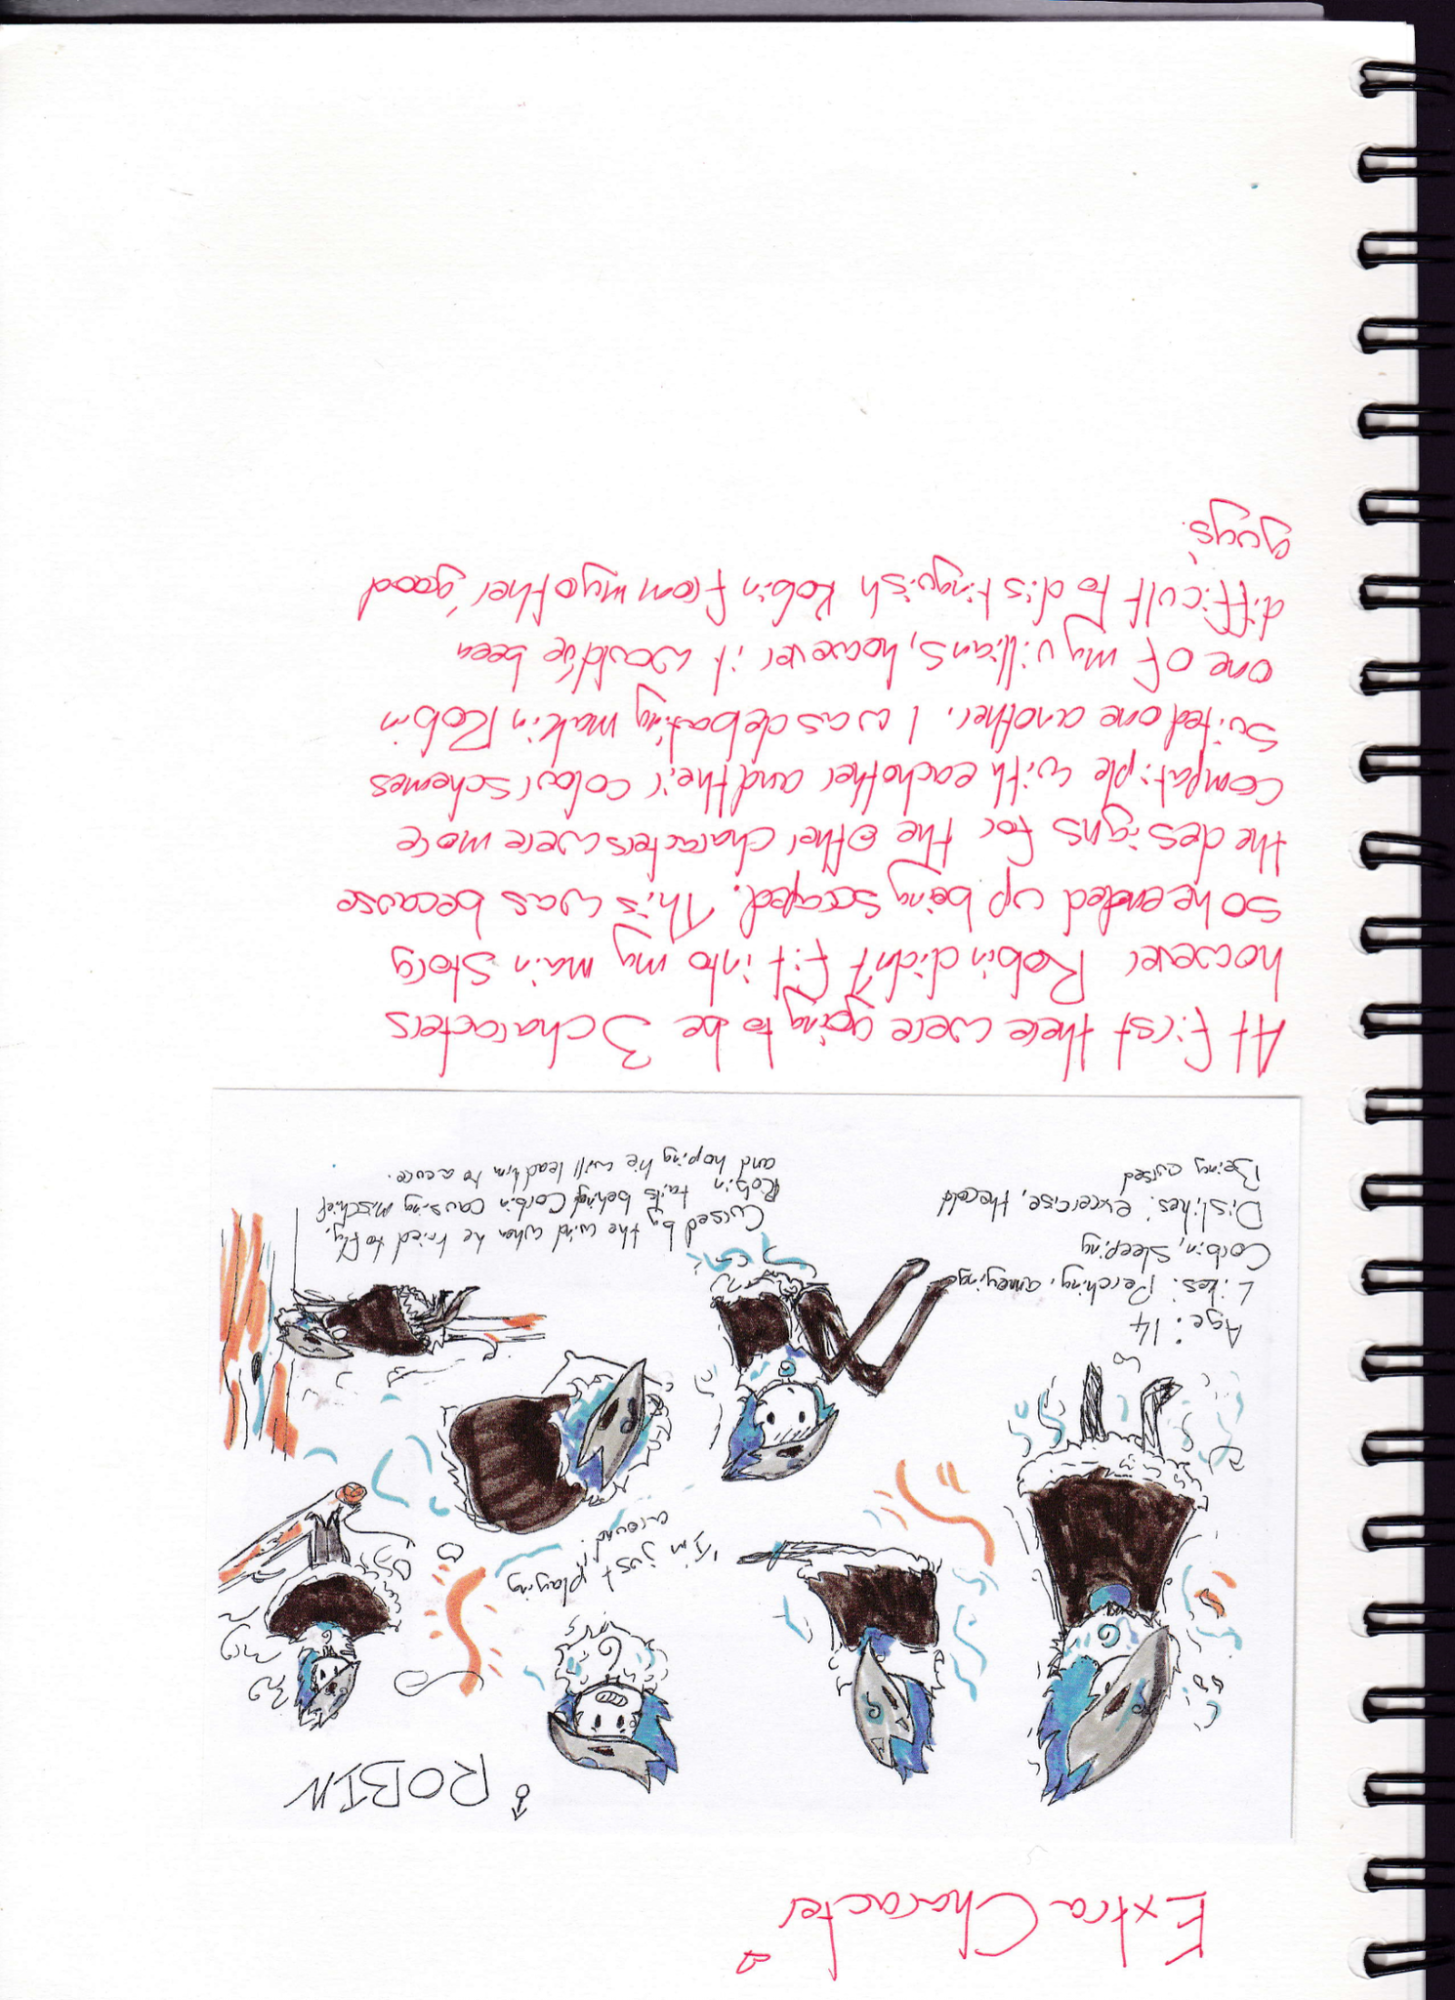 Extra Character
♂ ROBIN
"I'm just playing
around!"
Age: 14
Likes: Perching, annoying
Corbin, sleeping
Dislikes: excercise, the cold
Being cursed
Cursed by the wind when he tried to fly.
Robin tails behind Corbin causing mischief
and hoping he will lead him to a cure.
At first there were going to be 3 characters
however Robin didn't fit into my main story
so he ended up being scraped. This was because
the designs for the other characters were more
compatiple with eachother and their colour schemes
suited one another. I was debating makin Robin
one of my villians, however it would've been
difficult to distinguish Robin from my other 'good
guys'.